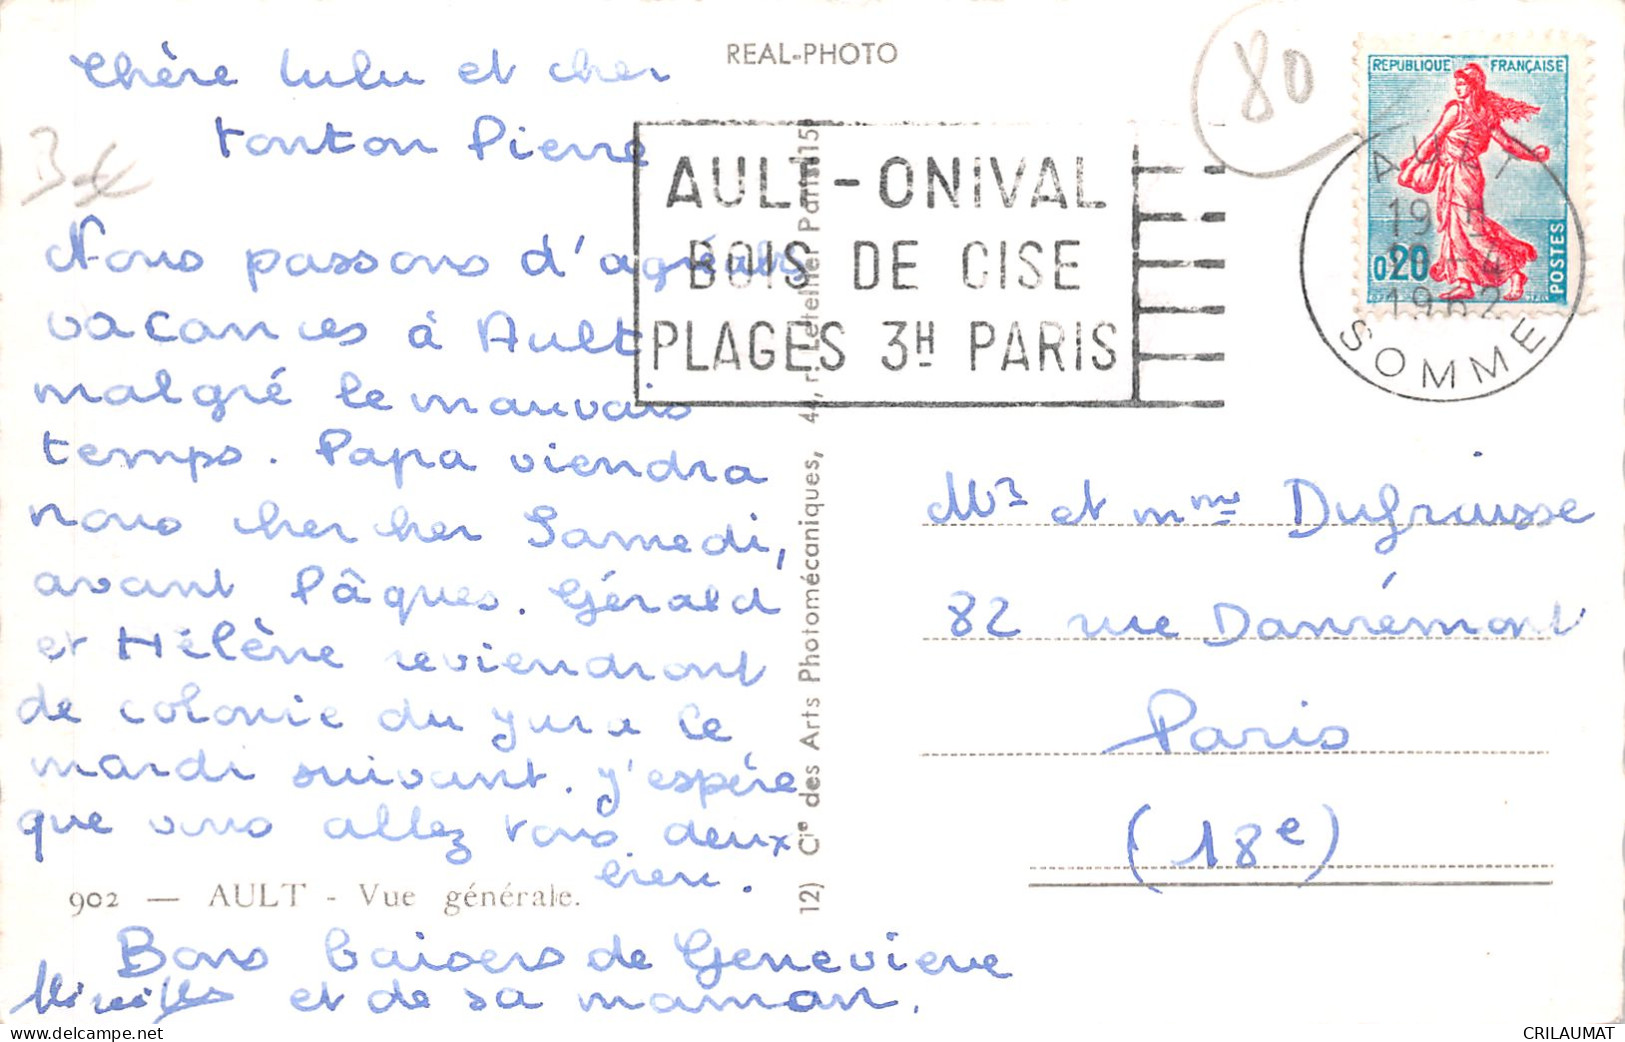 Chère Lulu et cher
tonton Pierre
Nous passons d'agréables
vacances à Ault
malgré le mauvais
temps. Papa viendra
nous chercher Samedi,
avant Pâques. Gérald
et Hélène reviendront
de colonie du Jura le
mardi suivant. J'espère
que vous allez tous deux
bien.
902 — AULT - Vue générale.
Bons baisers de Genevieve
Mireille et de sa maman.
REAL-PHOTO
12) Cie des Arts Photomécaniques, 44, r. Letellier Paris (15)
AULT - ONIVAL
BOIS DE CISE
PLAGES 3H PARIS
80
3€
REPUBLIQUE FRANÇAISE
0,20
POSTES
AULT
19 H
-4
1962
SOMME
Mr et Mme Dufraisse
82 rue Danrémont
Paris
(18e)
www.delcampe.net
CRILAUMAT